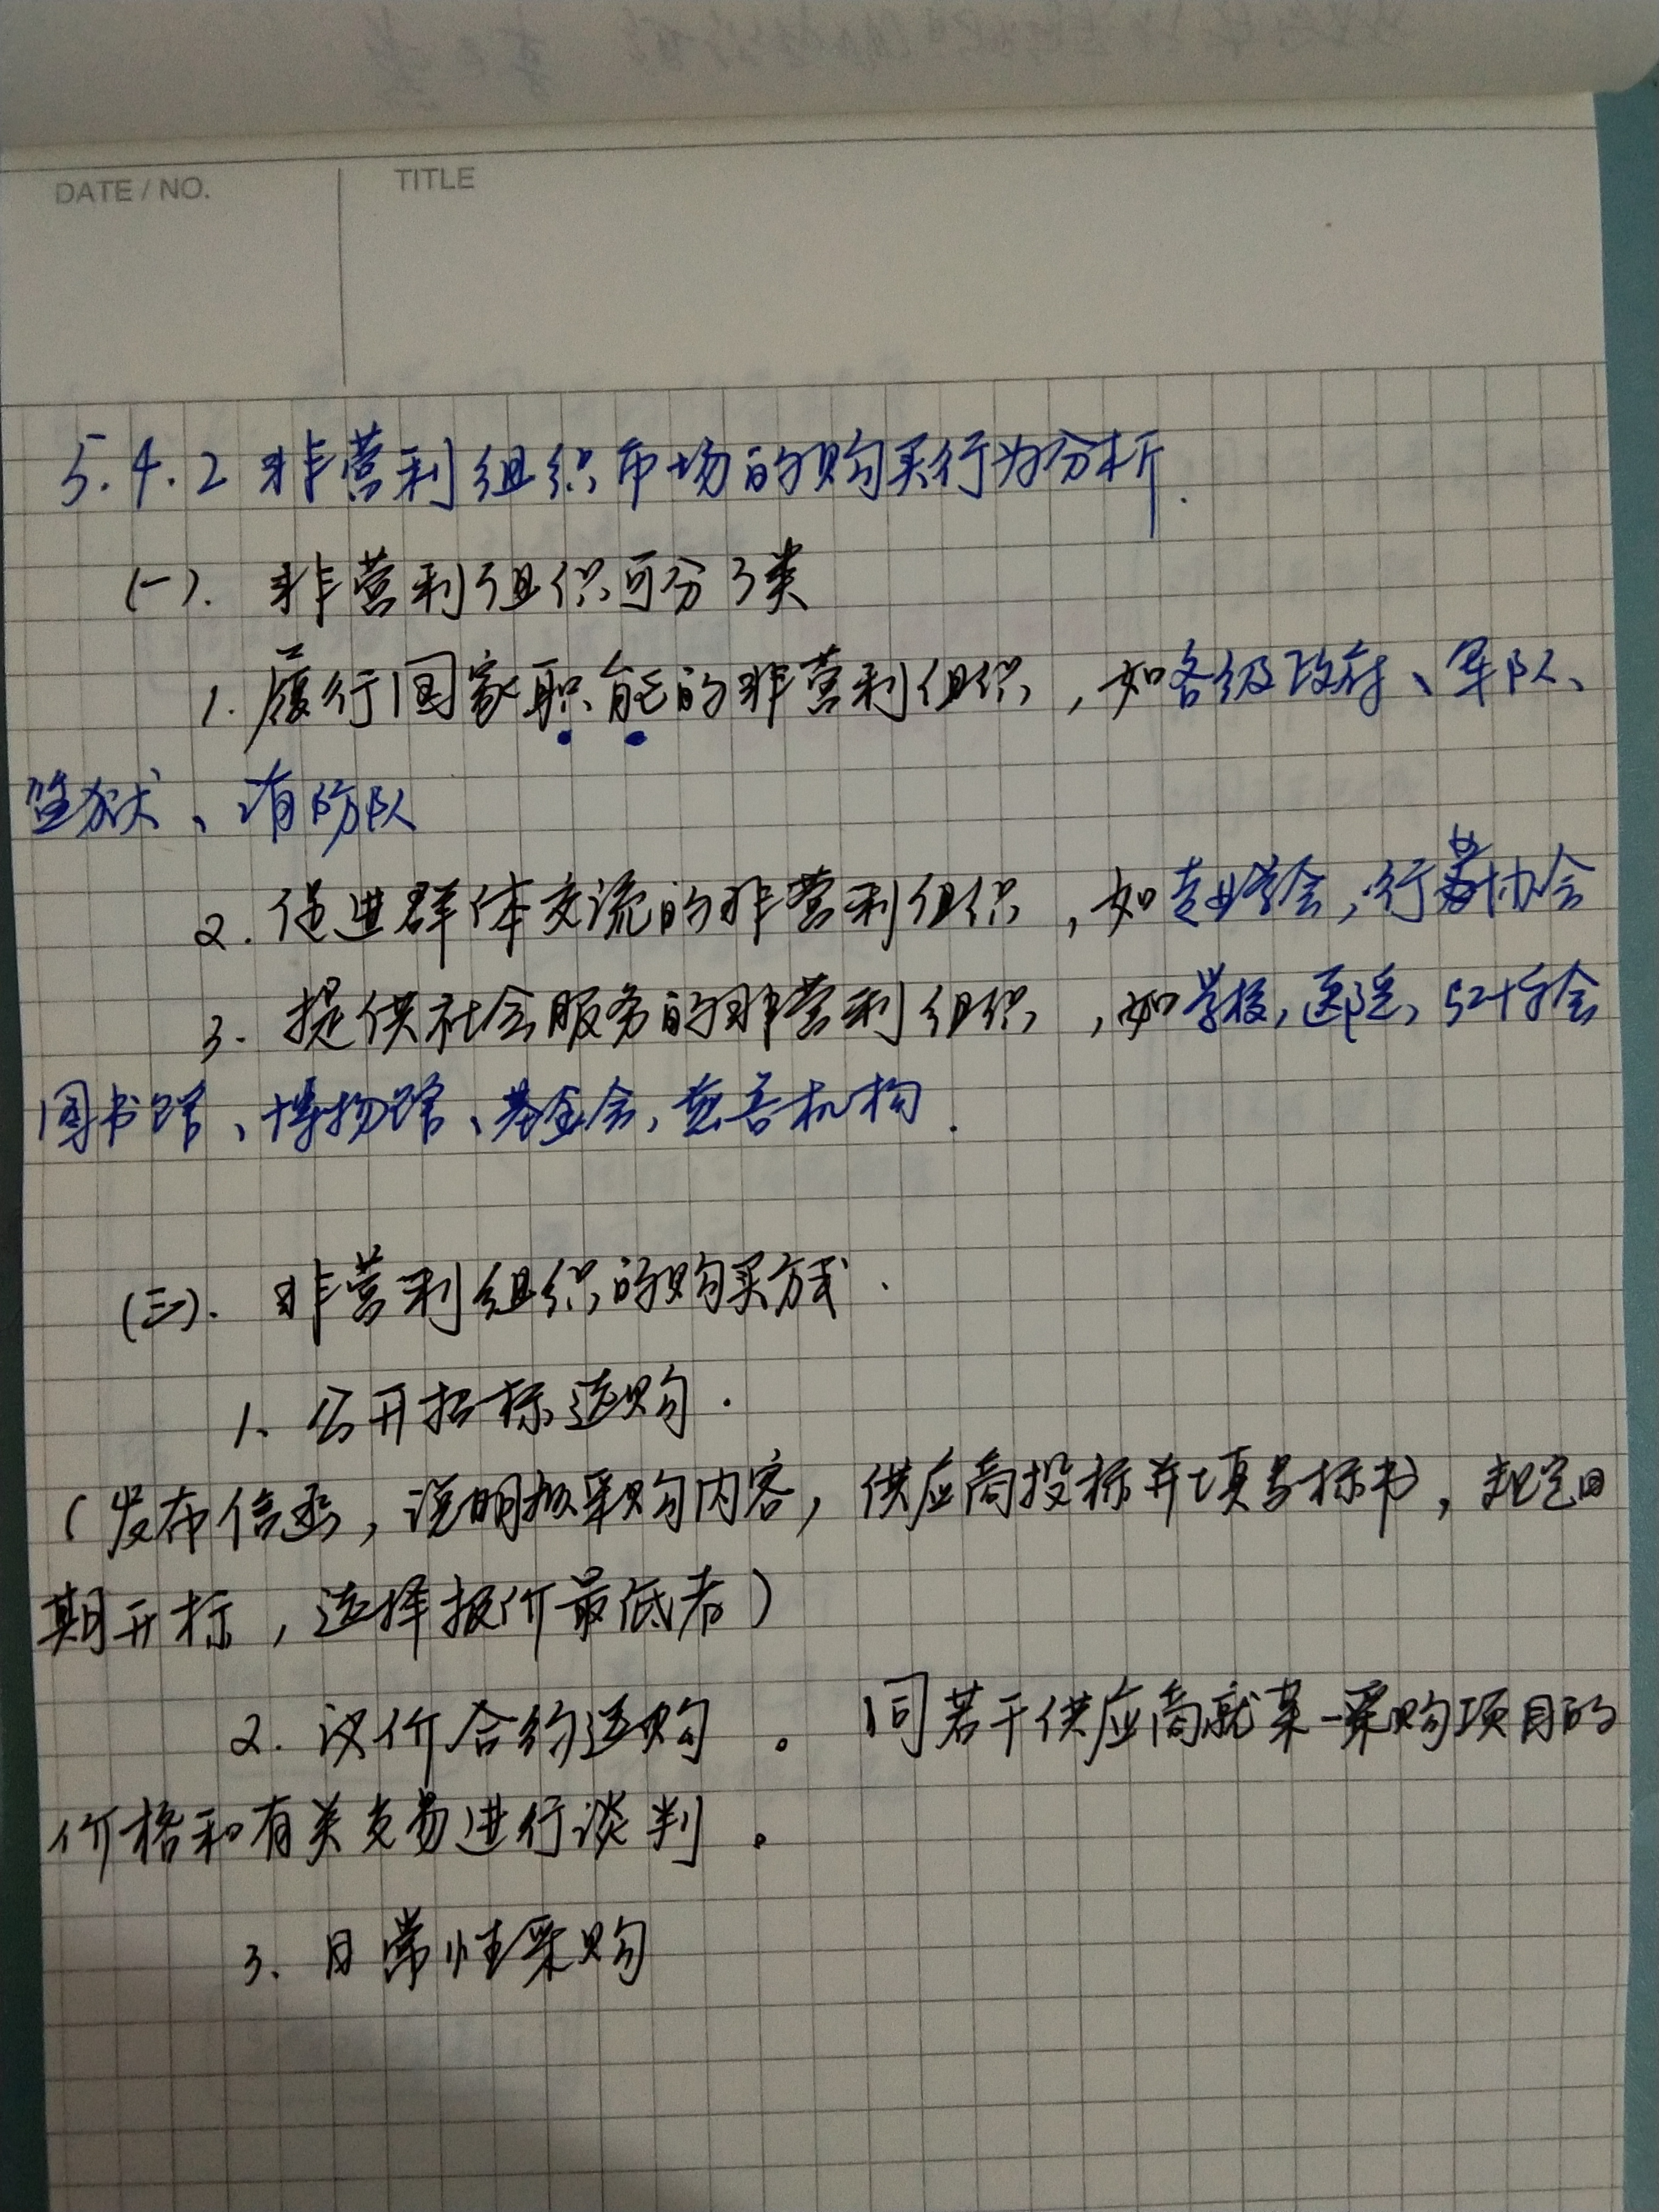 DATE / NO.
TITLE
5.4.2 非营利组织市场的购买行为分析.
(一). 非营利组织可分3类
1. 履行国家职能的非营利组织,如各级政府、军队、
监狱、消防队
2. 促进群体交流的非营利组织,如专业学会,行业协会
3. 提供社会服务的非营利组织,如学校,医院,红十字会
图书馆、博物馆、基金会,慈善机构.
(三). 非营利组织的购买方式.
1. 公开招标选购.
(发布信函,说明拟采购内容,供应商投标并填写标书,规定日
期开标,选择报价最低者)
2. 议价合约选购。 同若干供应商就某一采购项目的
价格和有关交易进行谈判。
3. 日常性采购